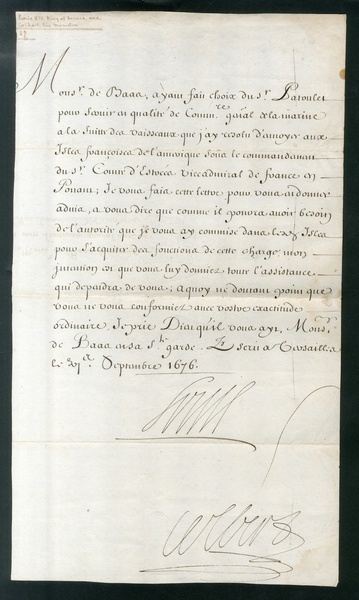 Louis XIV, King of France, and
Mons.r de Baas, ayant fait choix du s.r Patoulet
pour servir en qualité de Comm.re gñal de la marine
a la suitte des vaisseaux que j'ay resolu d'envoyer aux
Isles françoises de l'amerique soûs le commandement
du s.r Comte d'Estrées viceadmiral de france en
Ponant; Je vous fais cette lettre pour vous en donner
advis, et vous dire que comme il pourra avoir besoin
de l'autorité que je vous ay commise dans lesd. Isles
pour s'acquiter des fonctions de cette charge, mon
jntention est que vous luy donniez toute l'assistance
qui dependra de vous; a quoy ne doutant point que
vous ne vous conformiez avec vostre exactitude
ordinaire, Je prie Dieu qu'il vous ayt, Mons.r
de Baas en sa s.te garde. Escrit a Versailles
le Septembre 1676.
Louis
Colbert